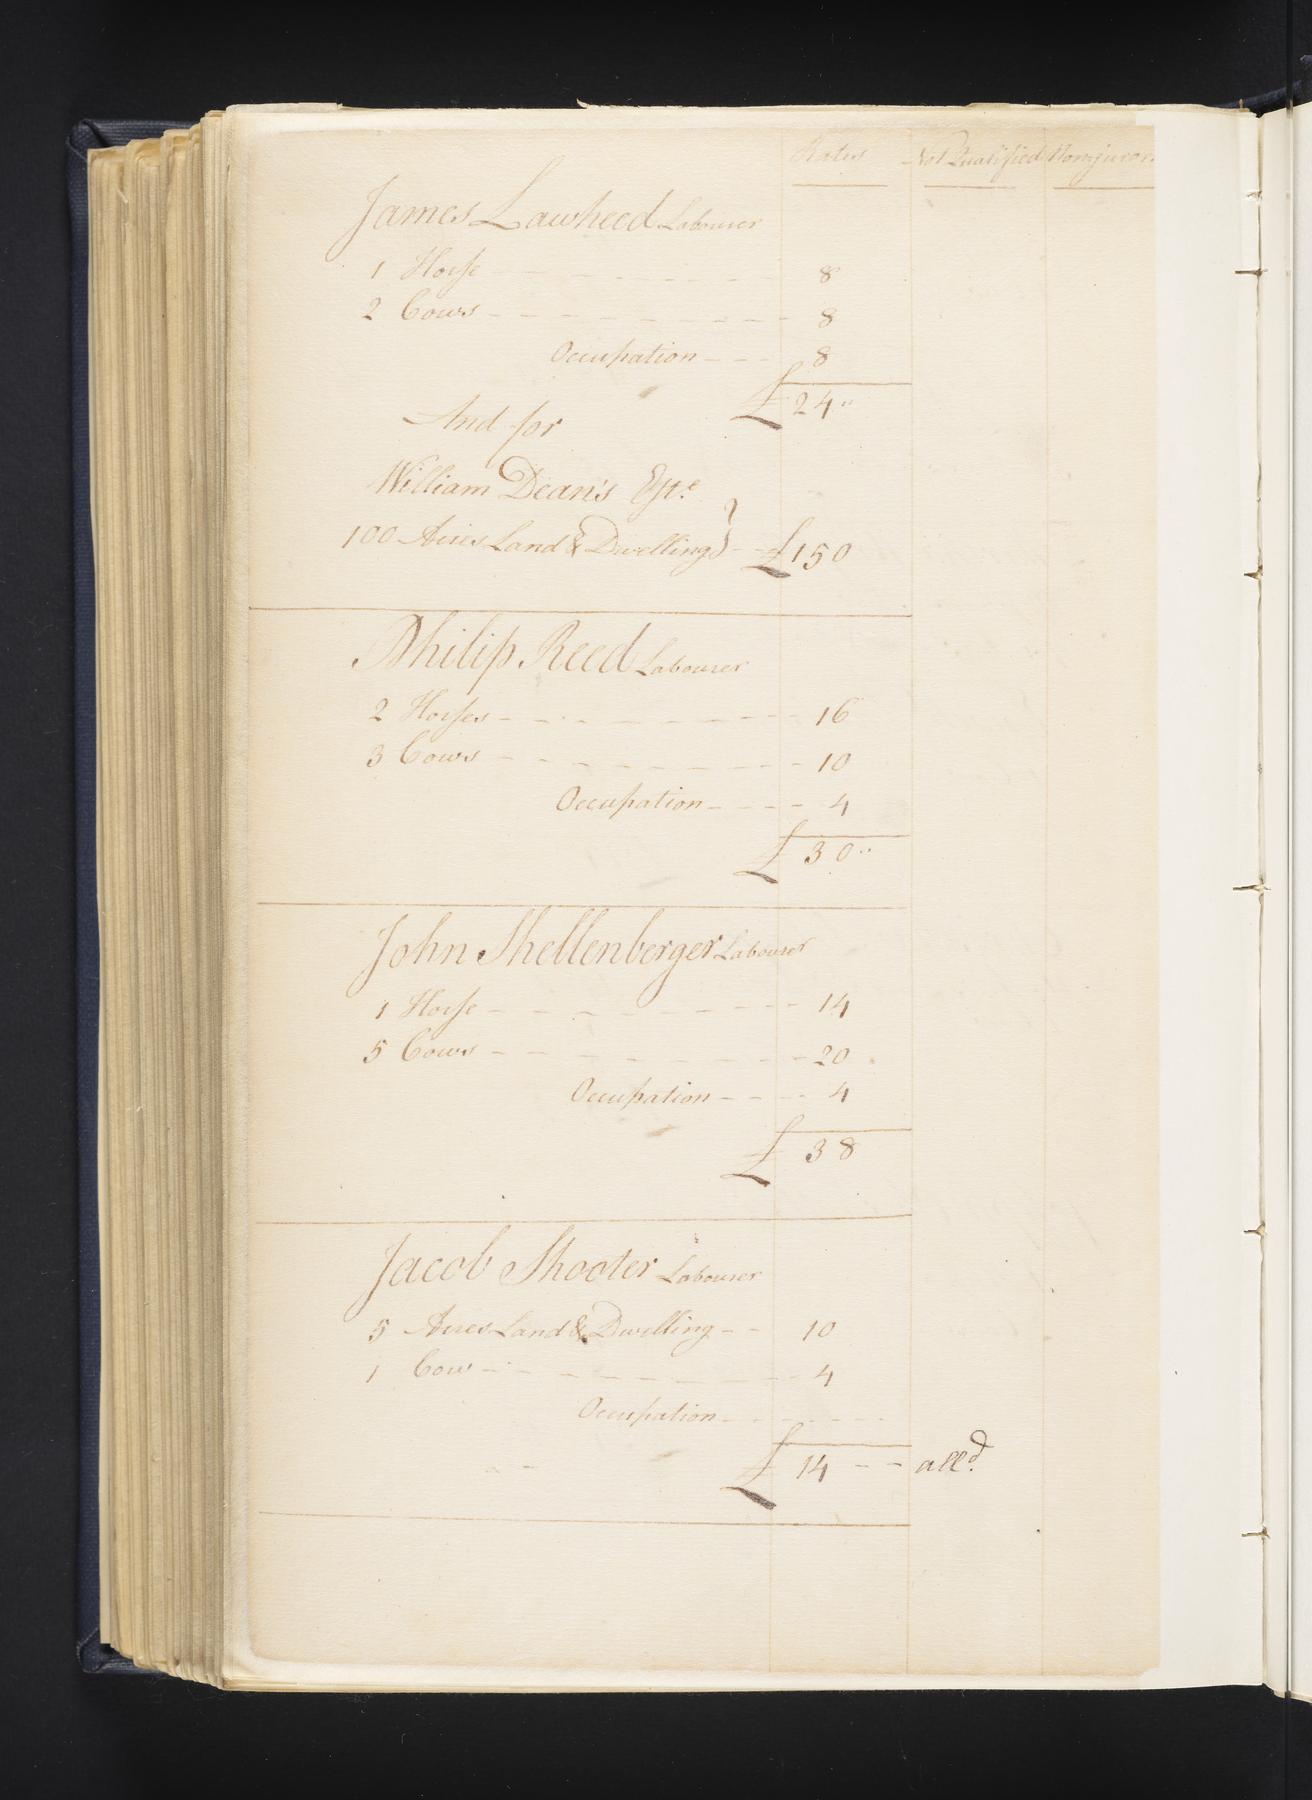 Rates Not Qualified Nonjuror
James Lawheed Labourer
1 Horse - - - - - - 8
2 Cows - - - - - - - - 8
Occupation - - - 8
£ 24 "
And for
William Dean's Esqr.
100 Acres Land & Dwelling } - - £150
Philip Reed Labourer
2 Horses - - - - - - - - 16
3 Cows - - - - - - - - 10
Occupation - - - - 4
£ 30 "
John Shellenberger Labourer
1 Horse - - - - - - - - 14
5 Cows - - - - - - - - 20
Occupation - - - - 4
£ 38
Jacob Shooter Labourer
5 Acres Land & Dwelling - - 10
1 Cow - - - - - - - - 4
Occupation - - - - - -
£ 14 - - alld.